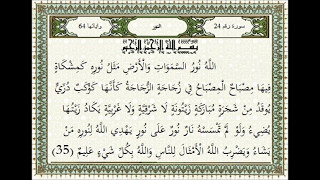 سورة رقم 24 النور وآياتها 64
بسم الله الرحمن الرحيم
اللَّهُ نُورُ السَّمَوَاتِ وَالْأَرْضِ مَثَلُ نُورِهِ كَمِشْكَاةٍ
فِيهَا مِصْبَاحٌ الْمِصْبَاحُ فِي زُجَاجَةٍ الزُّجَاجَةُ كَأَنَّهَا كَوْكَبٌ دُرِّيٌّ
يُوقَدُ مِنْ شَجَرَةٍ مُبَارَكَةٍ زَيْتُونَةٍ لَا شَرْقِيَّةٍ وَلَا غَرْبِيَّةٍ يَكَادُ زَيْتُهَا
يُضِيءُ وَلَوْ لَمْ تَمْسَسْهُ نَارٌ نُورٌ عَلَى نُورٍ يَهْدِي اللَّهُ لِنُورِهِ مَنْ
يَشَاءُ وَيَضْرِبُ اللَّهُ الْأَمْثَالَ لِلنَّاسِ وَاللَّهُ بِكُلِّ شَيْءٍ عَلِيمٌ (35)